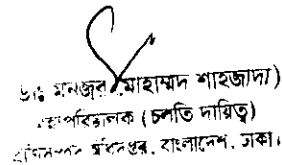 মনজুর মোহাম্মদ শাহজাদা)
মহাপরিচালক (চলতি দায়িত্ব)
অধিদপ্তর, বাংলাদেশ, ঢাকা।